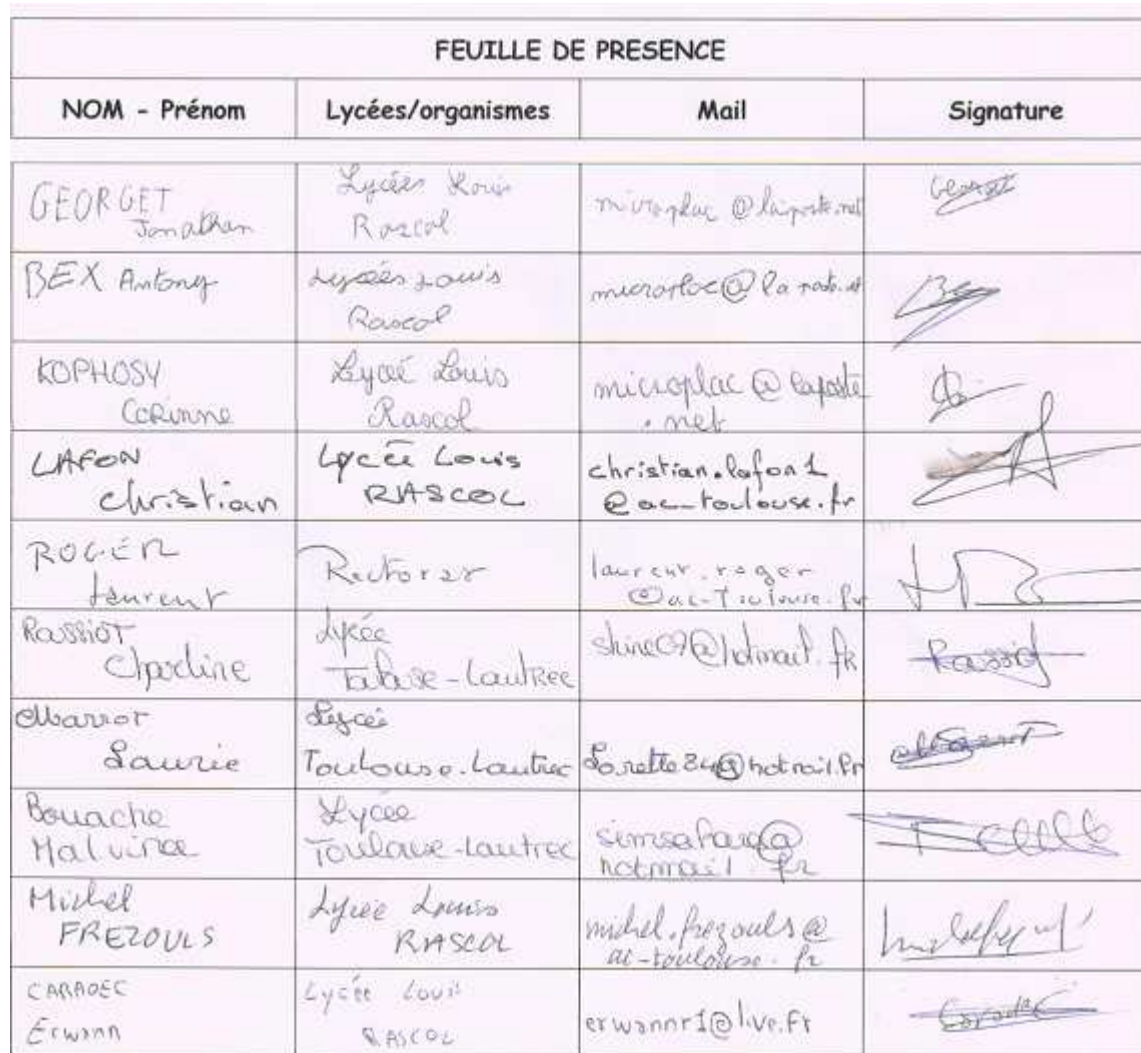 FEUILLE DE PRESENCE
NOM - Prénom Lycées/organismes Mail Signature
GEORGET
Jonathan
Lycées Louis
Rascol
microplac @laposte.net
BEX Antony
Lycées Louis
Rascol
KOPHOSY
Corinne
Lycée Louis
Rascol
microplac @ laposte
.net
LAFON
christian
Lycée Louis
RASCOL
christian.lafon1
@ac-toulouse.fr
ROGER
Laurent
Rectorat
laurent.roger
@ac-Toulouse.fr
Rassiot
Charline
Lycée
Lautrec
@hotmail.fr
Rassiot
Marrot
Laurie
Lycée
Toulouse-Lautrec
@hotmail.fr
Bouache
Malvina
Lycée
Toulouse-Lautrec
hotmail.fr
Michel
FREZOULS
Lycée Louis
RASCOL
michel.frezouls@
ac-toulouse.fr
CARADEC
Erwann
Lycée Louis
RASCOL
erwannr1@live.fr
Caradec